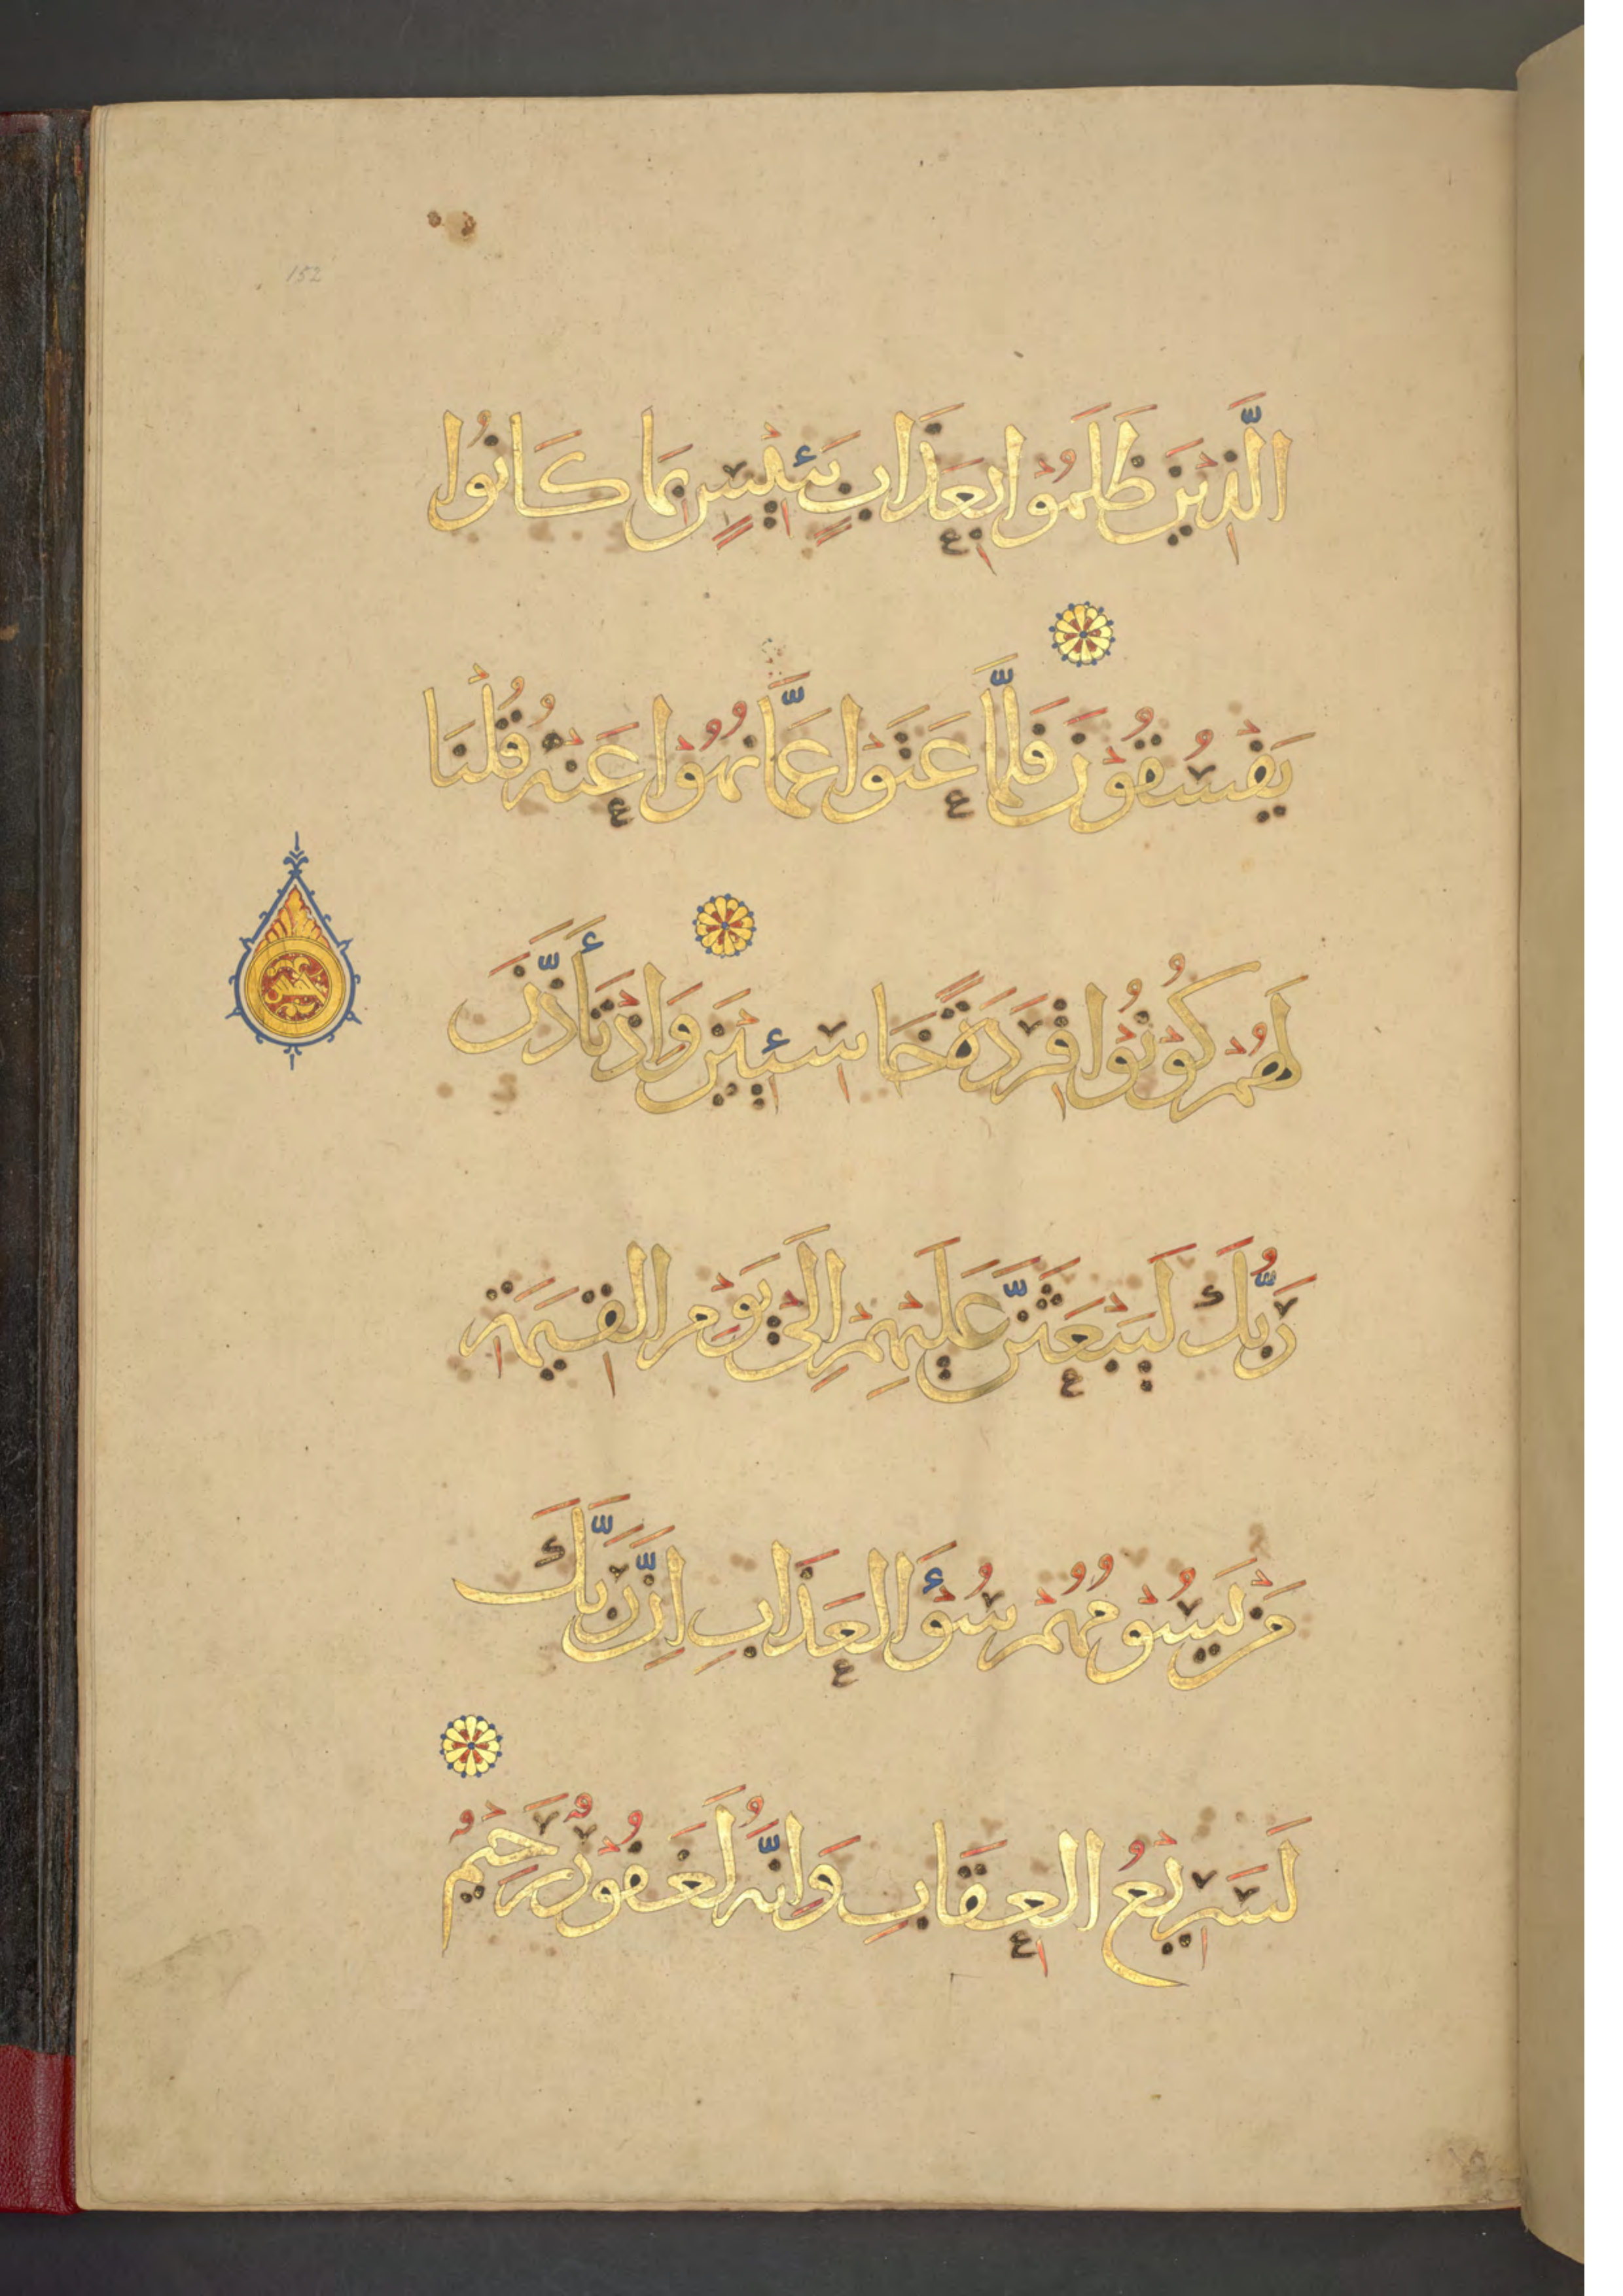 152
الَّذِيْنَ ظَلَمُوْا بِعَذَابٍ بَئِيْسٍ بِمَا كَانُوا
يَفْسُقُوْنَ فَلَمَّا عَتَوْا عَمَّا نُهُوْا عَنْهُ قُلْنَا
لَهُمْ كُوْنُوْا قِرَدَةً خَاسِئِيْنَ وَاِذْ تَأَذَّنَ
خمس
رَبُّكَ لَيَبْعَثَنَّ عَلَيْهِمْ اِلَى يَوْمِ الْقِيمَةِ
مَنْ يَسُوْمُهُمْ سُوْءَ الْعَذَابِ اِنَّ رَبَّكَ
لَسَرِيْعُ الْعِقَابِ وَاِنَّهُ لَغَفُوْرٌ رَحِيْمٌ